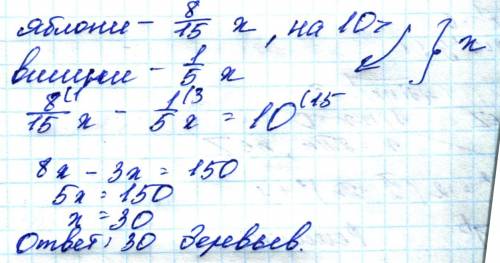 яблони – 8/15 x, на 10> } x
вишни – 1/5 x
8/15 (1 x – 1/5 (3 x = 10 (15
8x – 3x = 150
5x = 150
x = 30
Ответ: 30 деревьев.